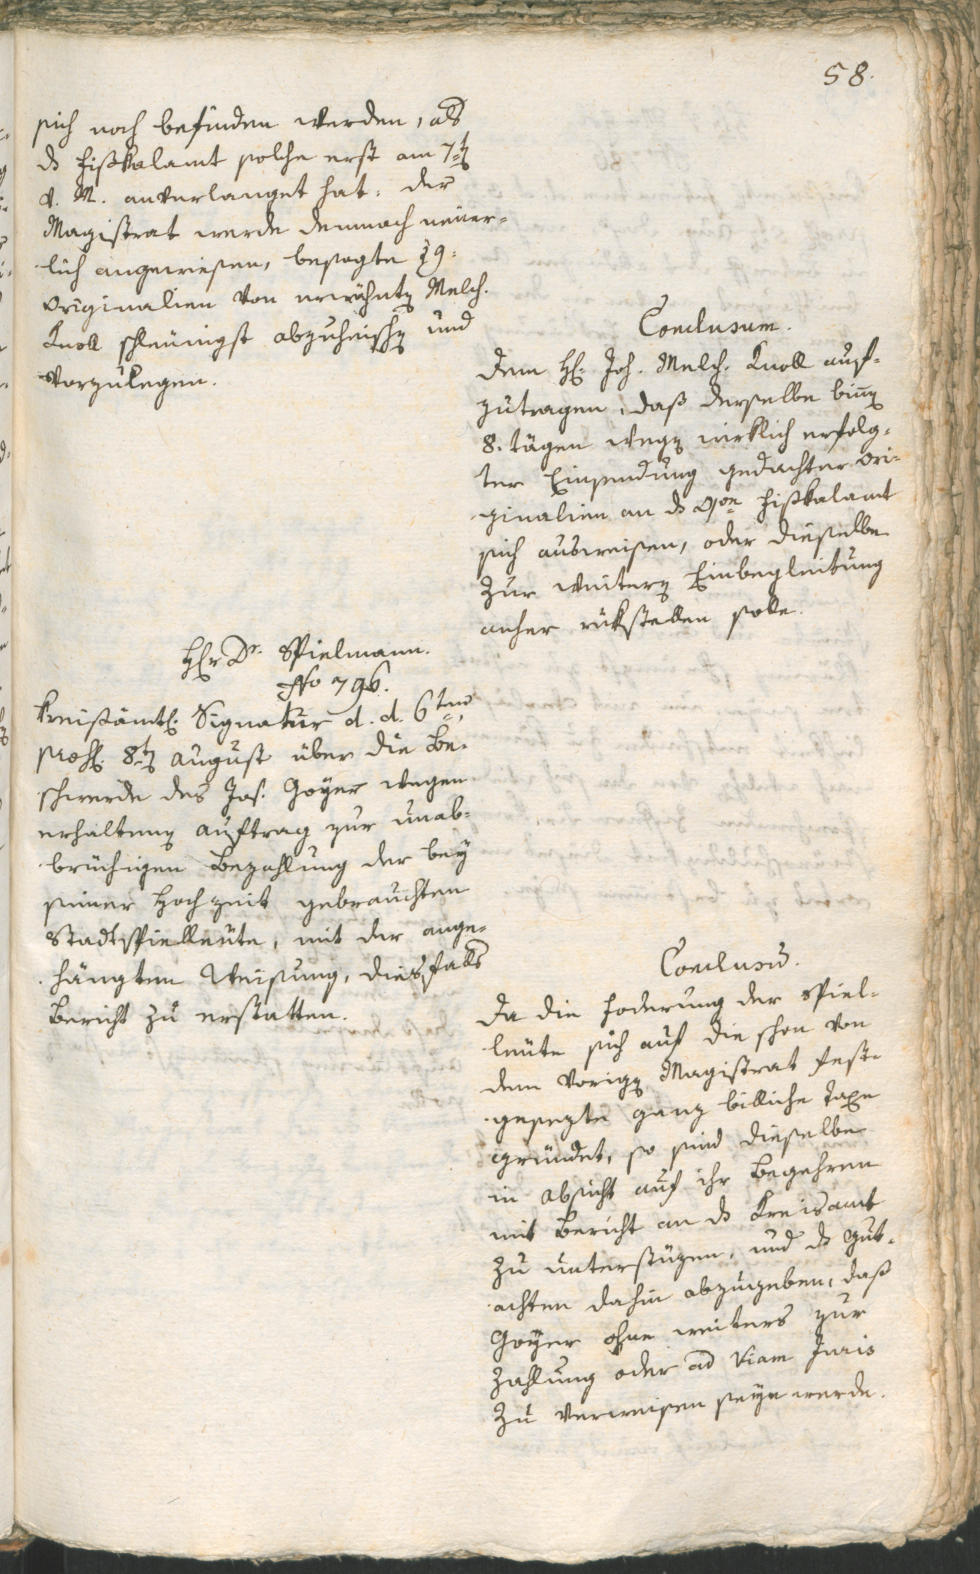 58.
sich noch befinden werden, als
ds Fißkalamt solche erst am 7t
v. M. anverlanget hat. Der
Magistrat werde demnach neüer-
lich angewiesen, besagte 39:
Originalien von erwähntn Melch.
Knoll schleünigst abzuheischn und
vorzulegen.
Conclusum.
Dem H: Joh. Melch. Knoll auf-
zutragen, daß derselbe binn
8. tägen wegn wirklich erfolg-
ter Einsendung gedachter Ori-
ginalien an ds Fißkalamt
sich ausweisen, oder dieselbe
zur weitern Einbegleitung
anher rükstellen solle.
Hr Dr. Spielmann.
No 796.
Kreißämtl: Signatur d. d. 6ten,
praes: 8t August über die Be-
schwerde des Jos. Goÿer wegen
erhaltenn Auftrag zur unab-
brüchigen Bezahlung der beÿ
seiner Hochzeit gebrauchten
Stadtspielleüte, mit der ange-
hängten Weisung, diesfalls
Bericht zu erstatten.
Conclusū.
Da die Foderung der Spiel-
leüte sich auf die schon von
dem vorign Magistrat fest-
gesezte ganz billiche Taxe
gründet, so sind dieselbe
in Absicht auf ihr Begehren
mit Bericht an ds Kreisamt
zu unterstüzen, und ds Gut-
achten dahin abzugeben, daß
Goÿer ohne weiters zur
Zahlung oder ad viam Juris
zu verweisen seÿn werde.